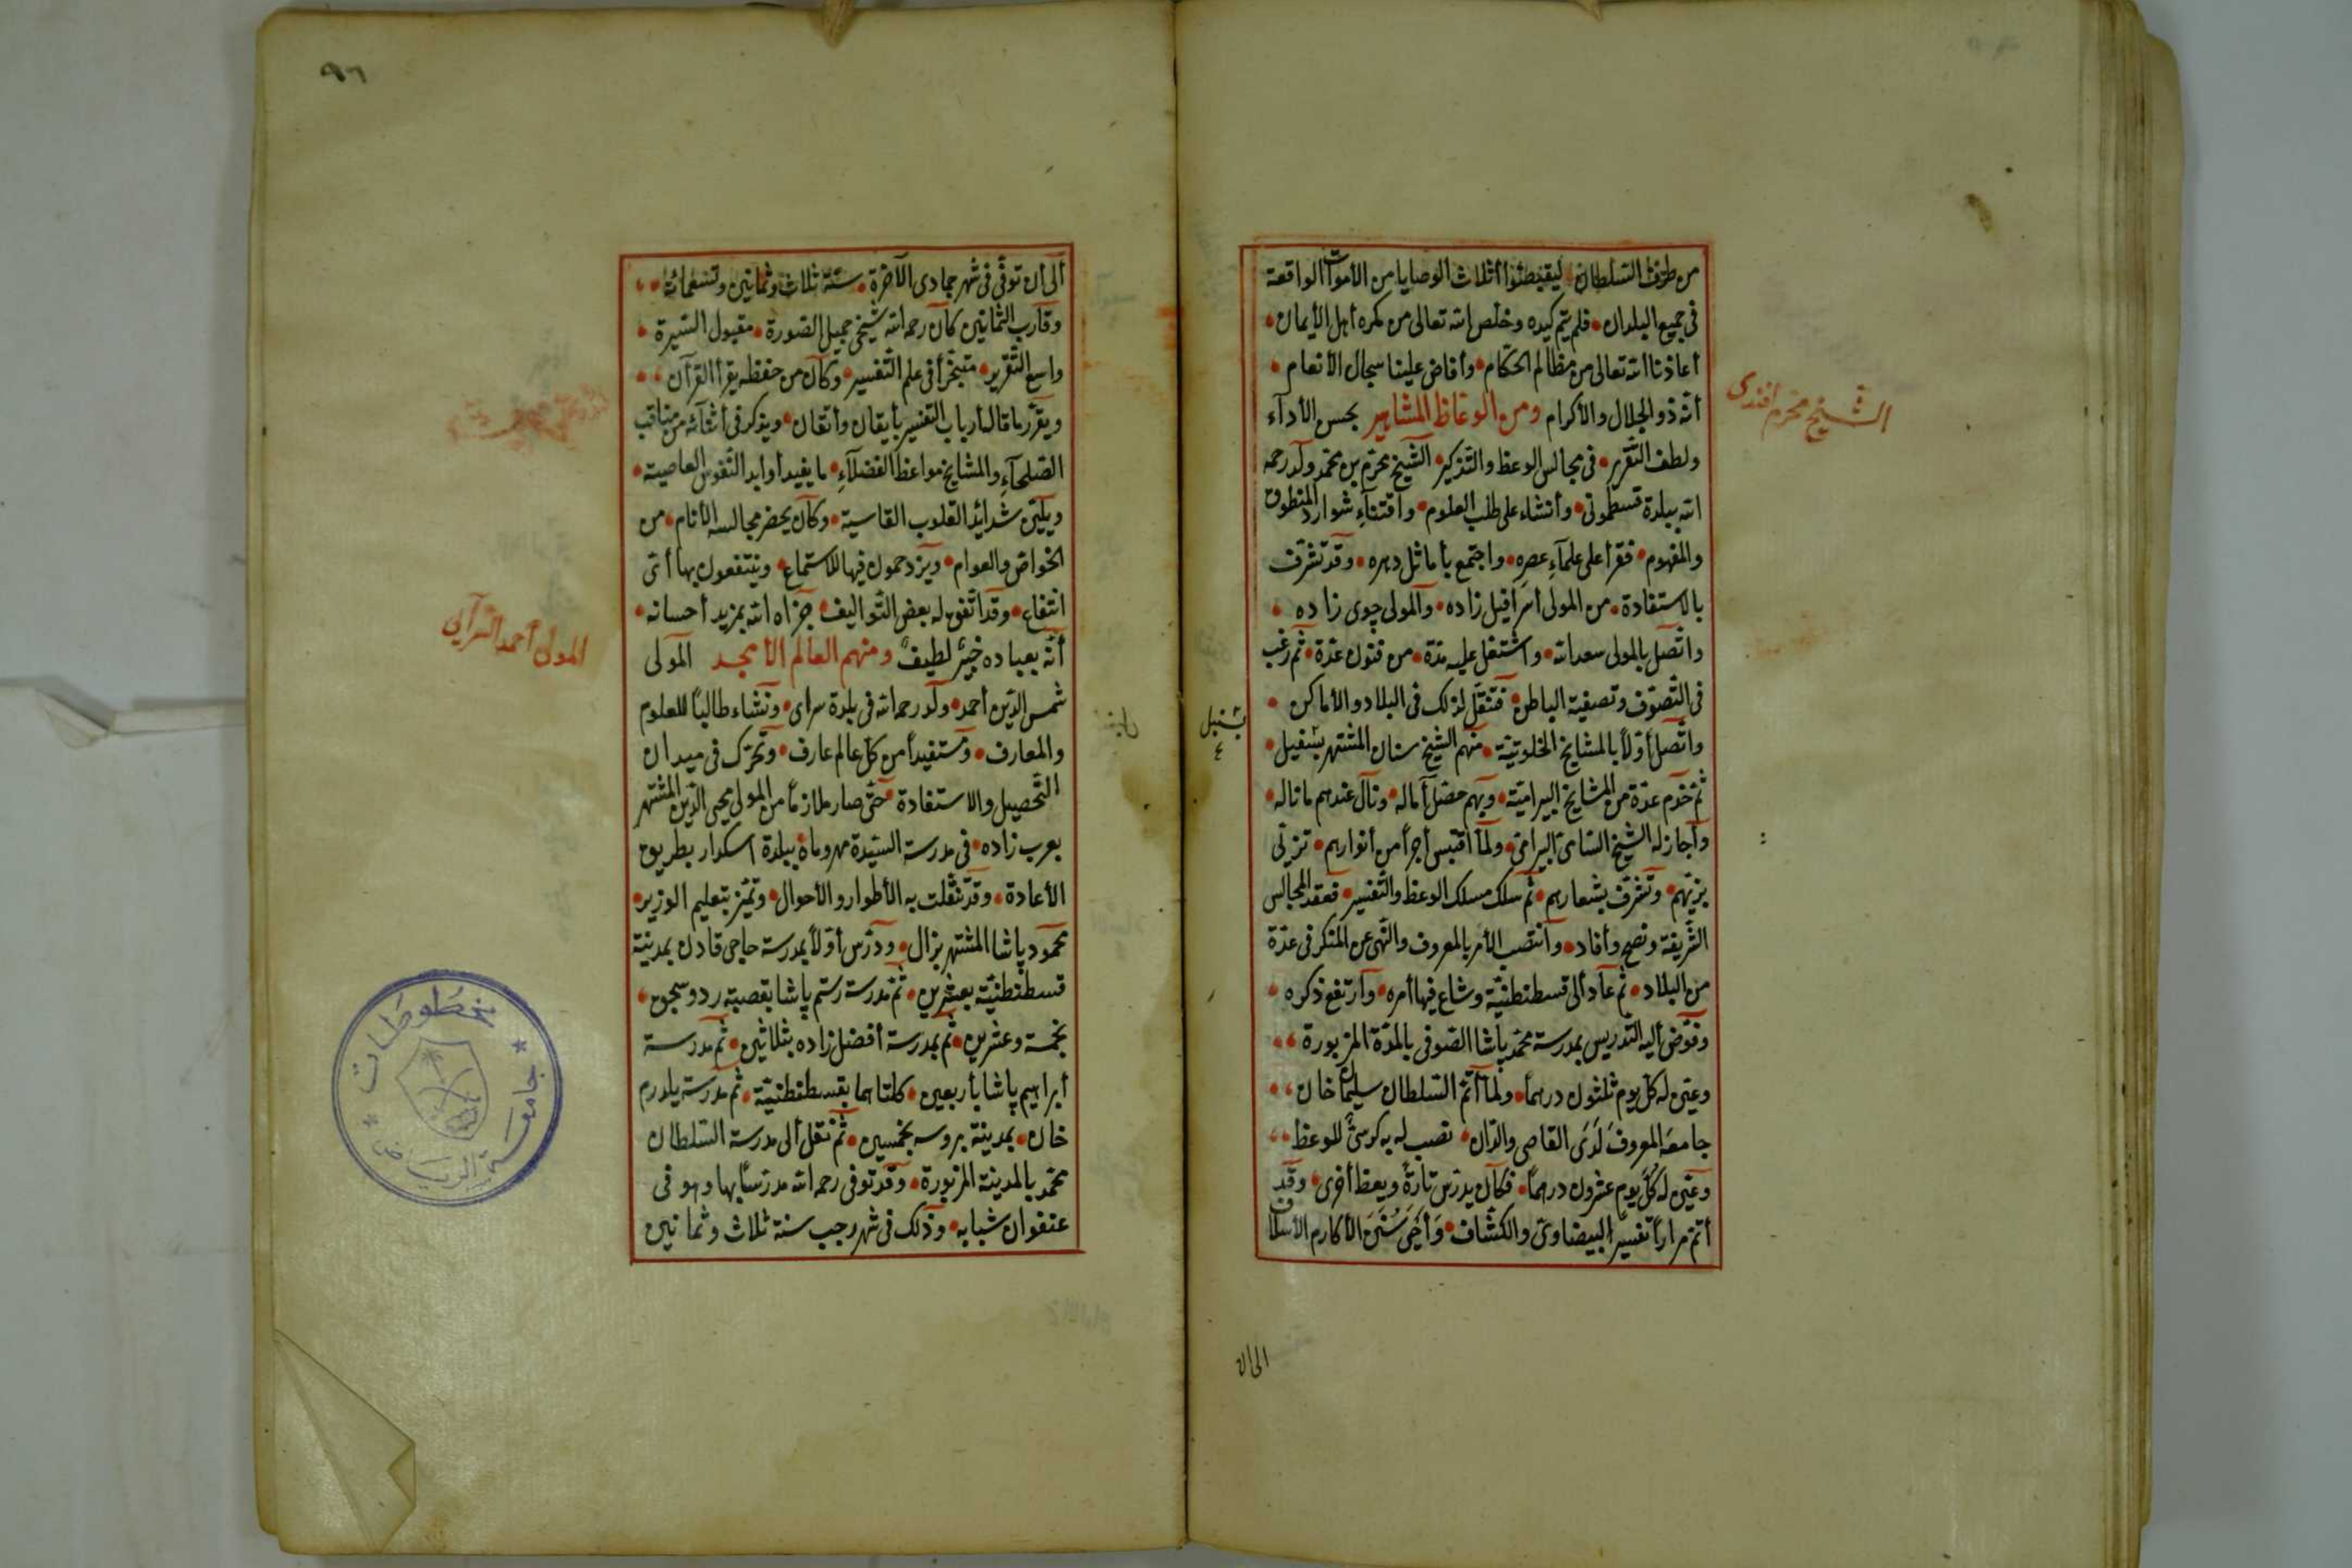 من طرف السلطان ليقبضوا أثلاث الوصايا من الأموات الواقعة
فى جميع البلدان فلم يتم كيده وخلص الله تعالى من مكره أهل الأيمان
أعاذنا الله تعالى من مظالم الحكام وأفاض علينا سجال الأنعام
أنه ذو الجلال والأكرام ومن الوعاظ المشاهير بحسن الأدآء
ولطف التقرير فى مجالس الوعظ والتذكير الشيخ محرم بن محمد ولد رحمه
الله ببلدة قسطمونى وأنشاء على طلب العلوم واقتنآء شوارد المنطوق
والمفهوم فقرأ على علمآء عصره واجتمع بأماثل دهره وقد تشرف
بالاستفادة من المولى أسرافيل زاده والمولى چوى زاده
واتصل بالمولى سعد الله واشتغل عليه مدة من فنون عدة ثم رغب
فى التصوف وتصفية الباطن فتنقل لذلك فى البلاد والأماكن
واتصل أولاً بالمشايخ الخلوتية منهم الشيخ سنان المشتهر بسنبل
ثم خدم عدة من المشايخ البيرامية وبهم حصل آماله ونال عندهم ما ناله
وأجاز له الشيخ الشامى البيرامى ولما اقتبس أجراً من أنوارهم تزيى
بزيهم وتعرف بشعارهم ثم سلك مسلك الوعظ والتفسير فعقد المجالس
الشريفة ونصح وأفاد وانتصب الأمر بالمعروف والنهى عن المنكر فى عدة
من البلاد ثم عاد ألى قسطنطنية وشاع فيها أمره وارتفع ذكره
وفوض أليه التدريس بمدرسة محمد پاشا الصوفى بالمدة المزبورة
وعين له كل يوم ثلثون درهما ولما أتم السلطان سليمان خان
جامعه المعروف لدى القاصى والدان نصب له به كرسى للوعظ
وعين له كل يوم عشرون درهماً فكان يدرس تارةً ويعظ أخرى وقد
أتم مراراً تفسير البيضاوى والكشاف وأحيى سنن الأكارم الأسلاف
الشيخ محرم افندى
بسنبل
٤
الى ان
٩٦
ألى أن توفى فى شهر جمادى الآخرة سنة ثلاث وثمانين وتسعمائة
وقارب الثمانين كان رحمه الله شيخى جميل الصورة مقبول السيرة
واسع التقرير متبحراً فى علم التفسير وكان من حفظه يقرأ القرآن
ويقرر ما قاله أرباب التفسير بأيقان وأتقان ويذكر فى أثنائه من مناقب
الصلحآء والمشايخ مواعظ الفضلآء ما يفيد أوابد النفوس العاصية
ويلين شدائد القلوب القاسية وكان يحضر مجالسه الأنام من
الخواص والعوام ويزدحمون فيها للاستماع وينتفعون بها أتى
انتفاع وقد اتفق له بعض التواليف جزاه الله بمزيد أحسانه
أنه بعباده خبير لطيف ومنهم العالم الأمجد المولى
شمس الدين أحمد ولد رحمه الله فى بلدة سراى ونشاء طالباً للعلوم
والمعارف ومستفيداً من كل عالم عارف وتحرك فى ميدان
التحصيل والاستفادة حتى صار ملازماً من المولى محيى الدين المشتهر
بعرب زاده فى مدرسة السيدة مهروماه ببلدة اسكدار بطريق
الأعادة وقد تنقلت به الأطوار والأحوال وتميز بتعليم الوزير
محمود پاشا المشتهر بزال ودرس أولاً بمدرسة حاجى قادن بمدينة
قسطنطنية بعشرين ثم مدرسة رستم پاشا بقصبة ردوسجوق
بخمسة وعشرين ثم بمدرسة أفضل زاده بثلاثين ثم مدرسة
أبراهيم پاشا بأربعين كلتاهما بقسطنطنية ثم مدرسة يلدرم
خان بمدينة بروسه بخمسين ثم نقل ألى مدرسة السلطان
محمد بالمدينة المزبورة وقد توفى رحمه الله مدرساً بها وهو فى
عنفوان شبابه وذلك فى شهر رجب سنة ثلاث وثمانين
المولى أحمد السرآيى
مخطوطات
جامعة الرياض